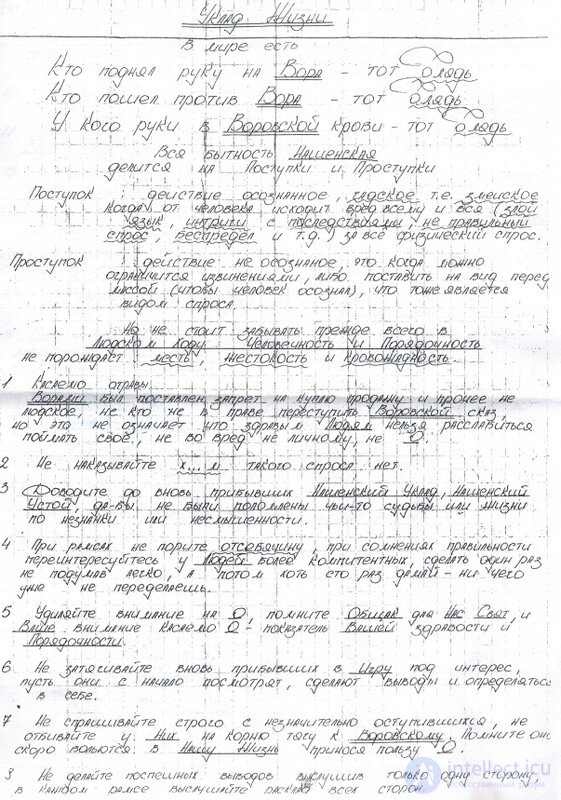 Уклад Жизни
В мире есть
Кто поднял руку на Вора - тот блядь
Кто пошел против Вора - тот блядь
У кого руки в Воровской крови - тот блядь
Вся бытность Нашенская
делится на Поступки и Проступки
Поступок : действие осознанное, гадское т.е. змейское
когда от человека исходит вред всему и вся (злой
язык, интриги с последствиями, не правильный
спрос, беспредел и т.д.) за всё физический спрос.
Проступок : действие не осознанное, это когда можно
ограничится извинениями, либо поставить на вид перед
массой (чтобы человек осознал), что тоже является
видом спроса.
Но не стоит забывать прежде всего в
Людском Ходу Человечность и Порядочность
не порождает месть, жестокость и кровожадность.
1 Касаемо отравы.
Ворами был поставлен запрет на куплю продажу и прочее не
людское, не кто не в праве переступить Воровской сказ,
но это не означает что здравым Людям нельзя расслабиться
поймать своё, не во вред не личному, не О.
2 Не наказывайте х...м такого спроса нет.
3 Доводите до вновь прибывших Нашенский Уклад, Нашенский
Устой, да-бы не были поломлены чьи-то судьбы или жизни
по незнанки или несмышлености.
4 При рамсах не порите отсебячину, при сомнениях правильности
переинтересуйтесь у Людей более компитентных, сделать один раз
не подумав легко, а потом хоть сто раз думай - ни чего
уже не переделаешь.
5 Уделяйте внимание на О, помните Общак для Нас Свят, и
Ваше внимание касаемо О - показатель Вашей здравости и
Порядочности.
6 Не затягивайте вновь прибывших в Игру под интерес,
пусть они с начало посмотрят, сделают выводы и определяться
в себе.
7 Не спрашивайте строго с незначительно оступившихся, не
отбивайте у Них на корню тягу к Воровскому. Помните они
скоро вольются в Нашу Жизнь принося пользу О.
8 Не делайте поспешных выводов выслушив только одну сторону,
в каждом рамсе выслушайте расклад всех сторон.
intellect.icu